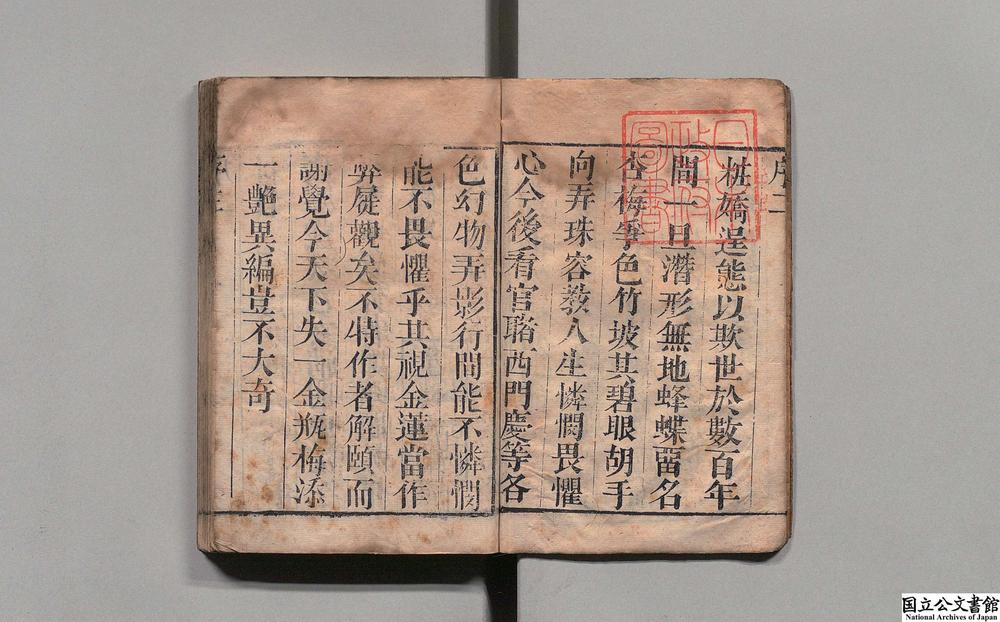 序二
粧嬌逞態以欺世於數百年
間一旦潛形無地蜂蝶畱名
杏梅爭色竹坡其碧眼胡乎
向弄珠容教人生憐憫畏懼
心今後看官睹西門慶等各
色幻物弄影行間能不憐憫
能不畏懼乎其視金蓮當作
弊屣觀矣不特作者解頤而
謝覺今天下失一金瓶梅添
一艷異編豈不大奇
序三
国立公文書館
National Archives of Japan